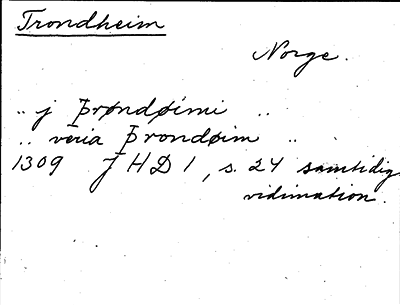 Trondheim
Norge.
.. j Þrøndøimi ..
.. væria Þrondøim ..
1309 JHD 1, s. 24 samtidig
vidimation.